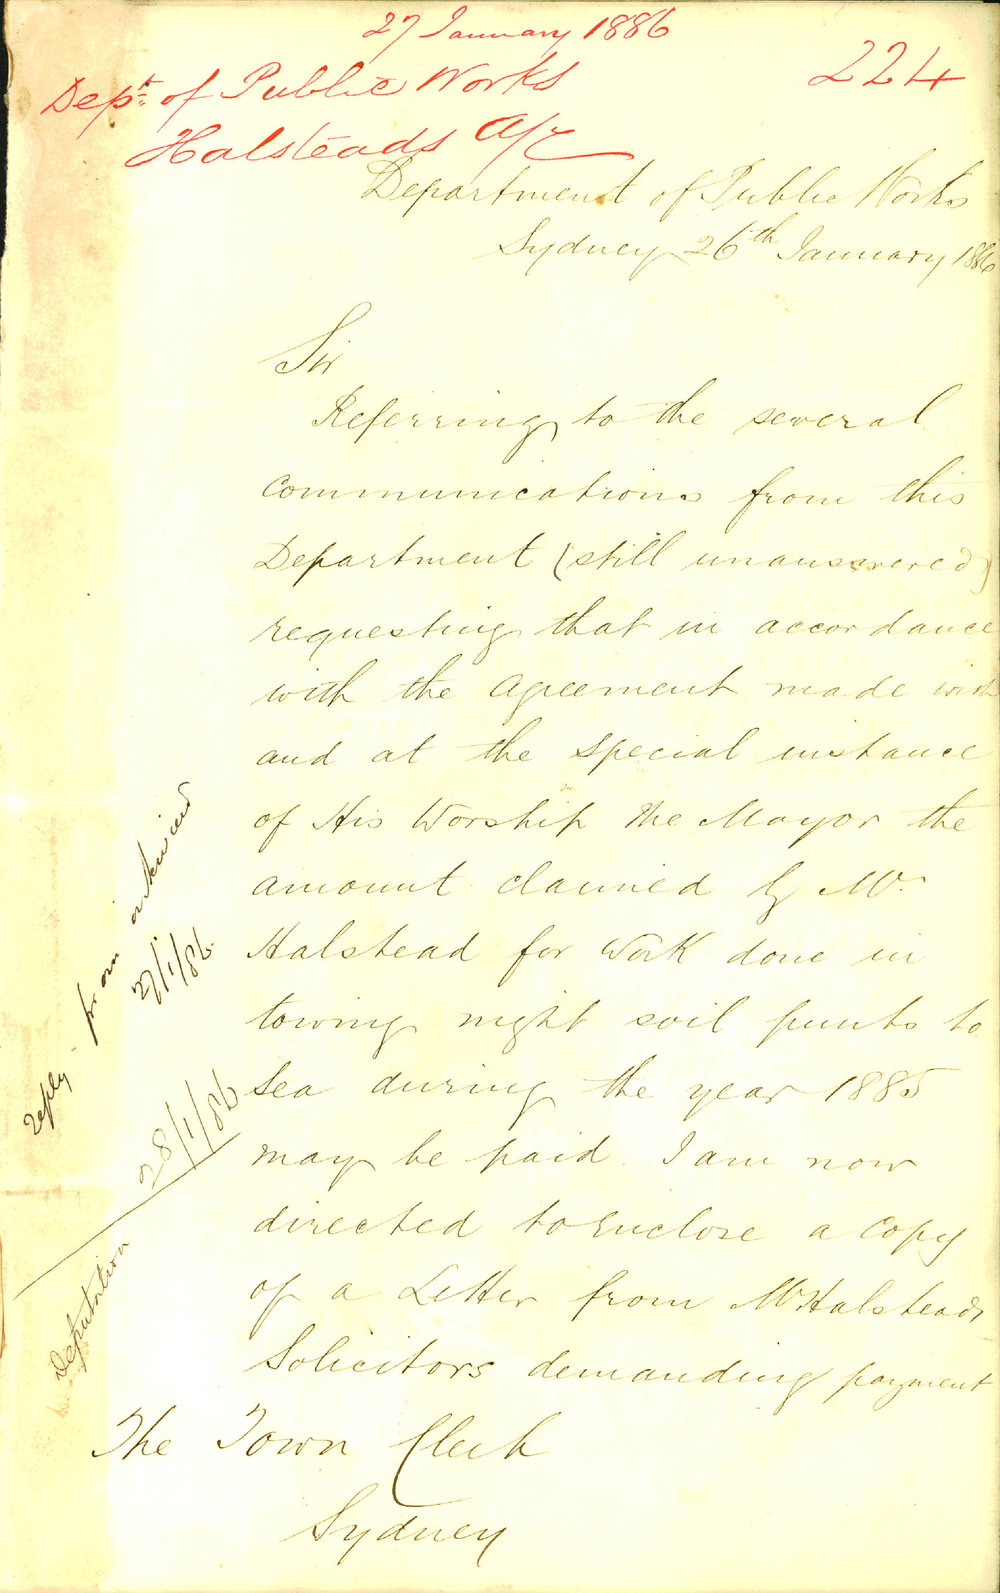 27 January 1886
224
Dept. of Public Works
Halsteads A/c
Department of Public Works
Sydney 26th January 1886
Sir
Referring to the several
communications from this
Department (still unanswered)
requesting that in accordance
with the Agreement made with
and at the special instance
of His Worship the Mayor the
amount claimed by Mr.
Halstead for work done in
towing night soil punts to
sea during the year 1885
may be paid. I am now
directed to Enclose a Copy
of a Letter from Mr Halsteads
Solicitors demanding payment
The Town Clerk
Sydney
reply
27/1/86
Deputation 28/1/86